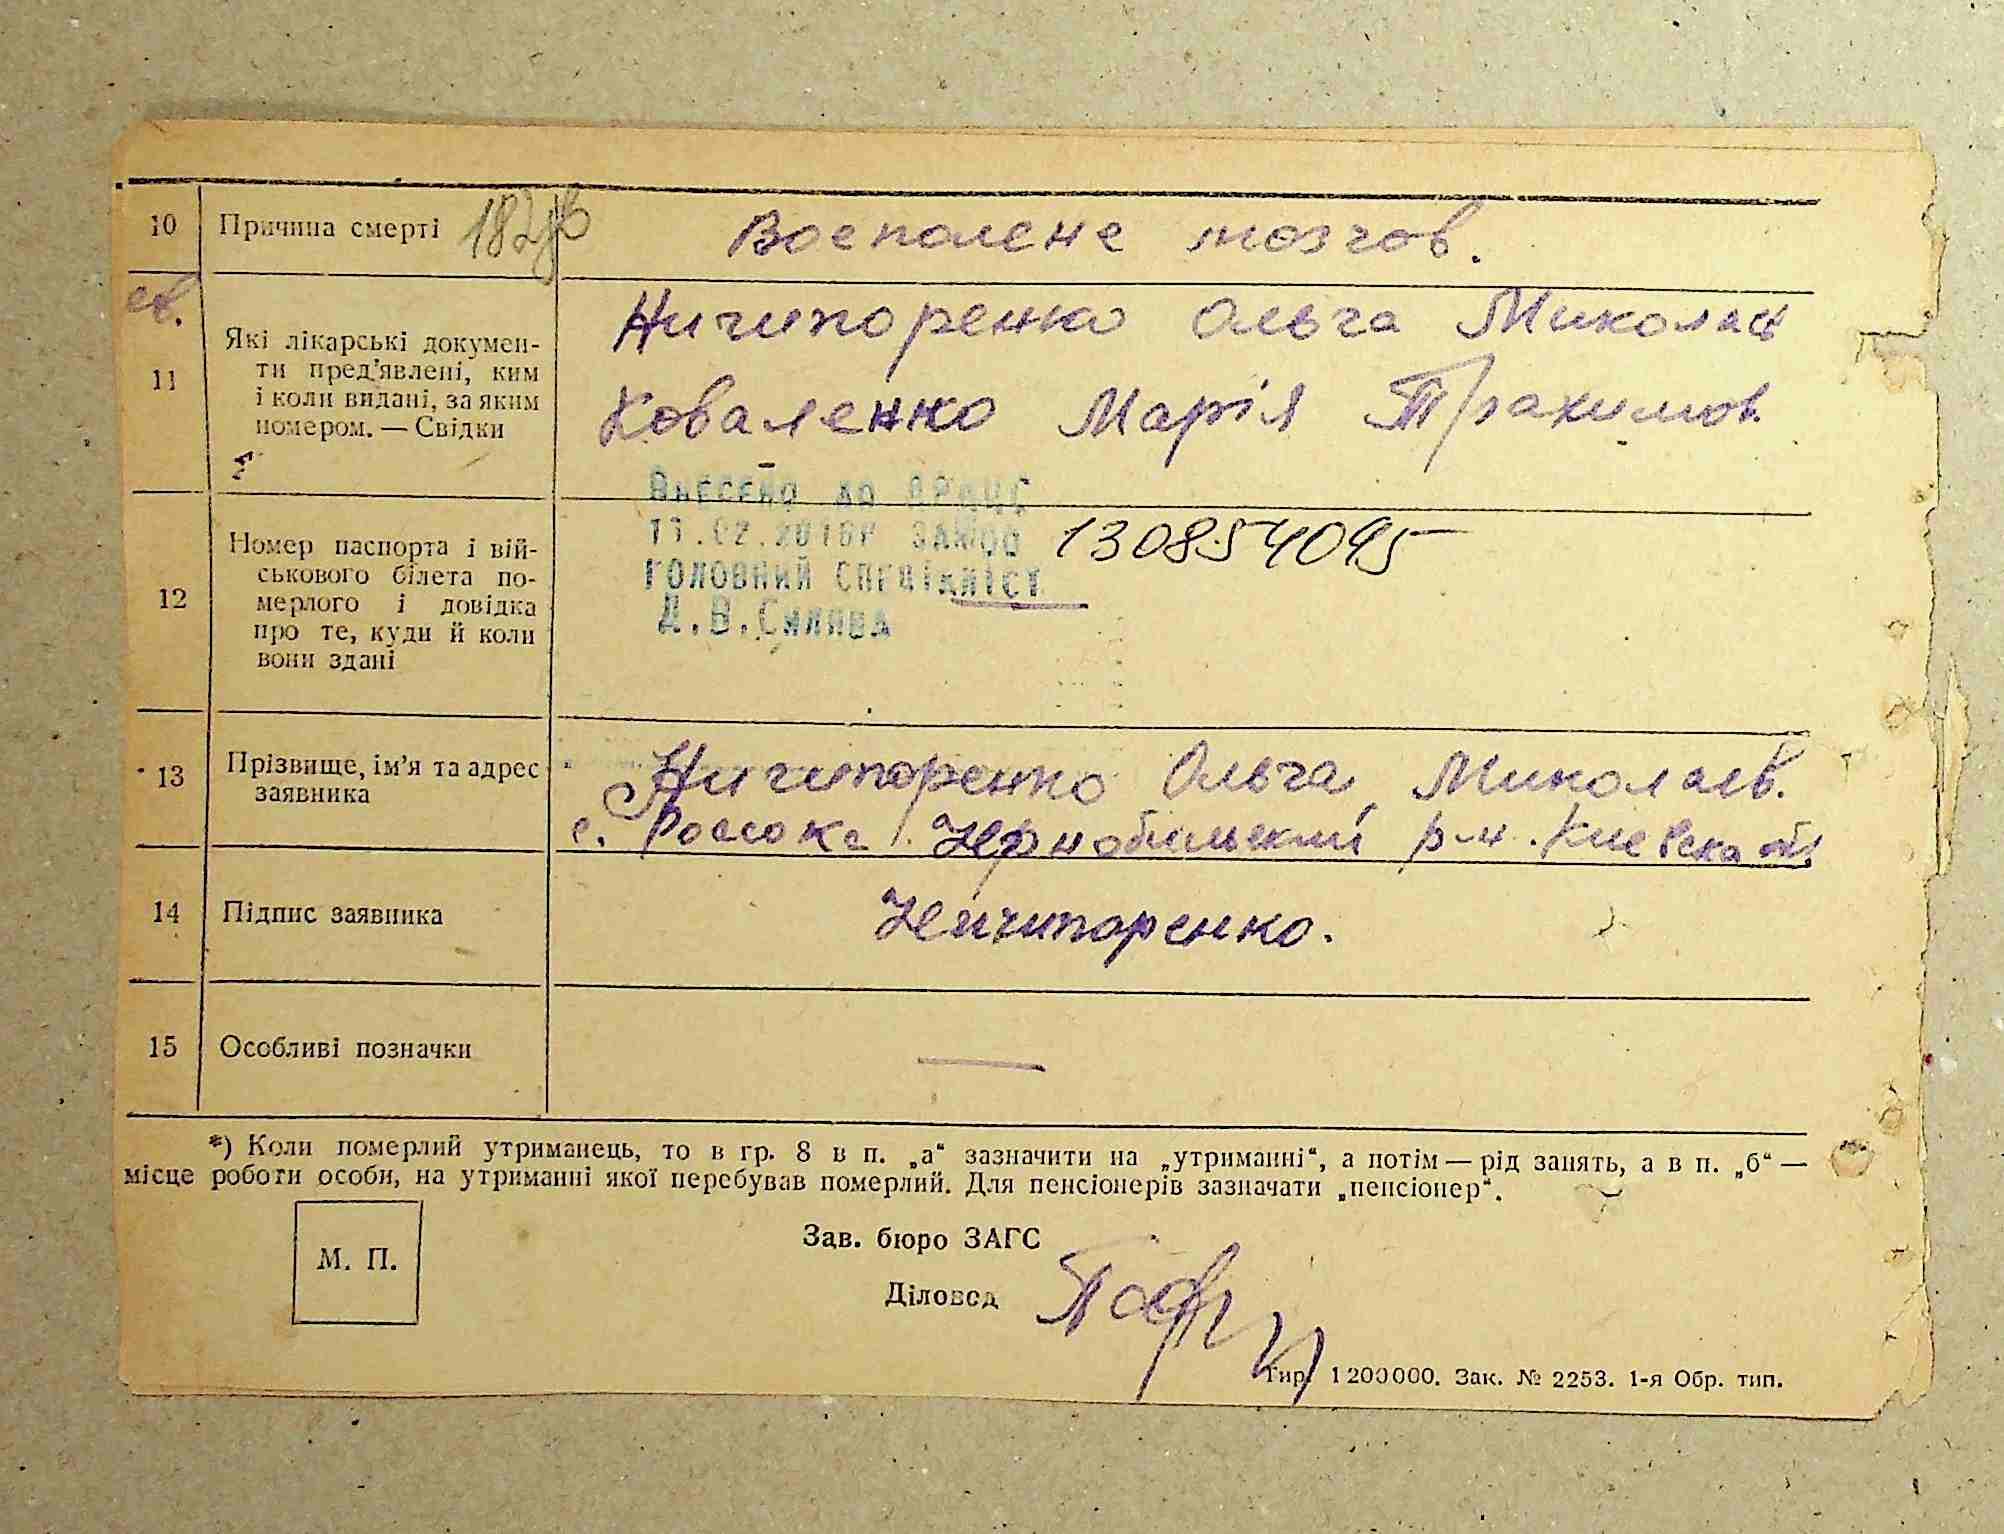 10 Причина смерті 182 Воєполене мозгов.
ев.
Ничипоренко Ольга Миколаєв
11 Які лікарські докумен-
ти пред’явлені, ким
і коли видані, за яким
номером. — Свідки
Коваленко Марія Трахимов.
Внесено до ДРАЦС
11.02.2016р ЗАМ00 130854095
головний спеціаліст
Д.В.Силява
12 Номер паспорта і вій-
ськового білета по-
мерлого і довідка
про те, куди й коли
вони здані
13 Прізвище, ім’я та адрес
заявника
Ничипоренко Ольга Миколаєв.
с. Россока Чернобильский р-н. Киевска обл
14 Підпис заявника Ничипоренко.
15 Особливі позначки —
*) Коли померлий утриманець, то в гр. 8 в п. „а“ зазначити на „утриманні“, а потім — рід занять, а в п. „б“ —
місце роботи особи, на утриманні якої перебував померлий. Для пенсіонерів зазначати „пенсіонер“.
М. П.
Зав. бюро ЗАГС
Діловод
Тир. 1200000. Зак. № 2253. 1-я Обр. тип.